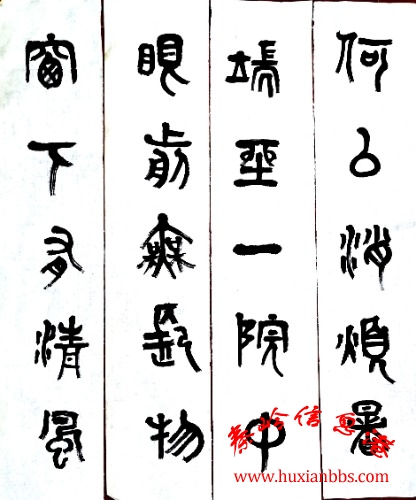 何以消煩暑
端坐一院中
眼前無長物
窗下有清風
秦岭信息
www.huxianbbs.com